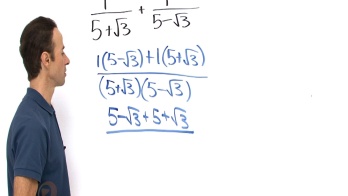 1/(5+√3) + 1/(5-√3)
1(5-√3)+1(5+√3)
(5+√3)(5-√3)
5-√3+5+√3